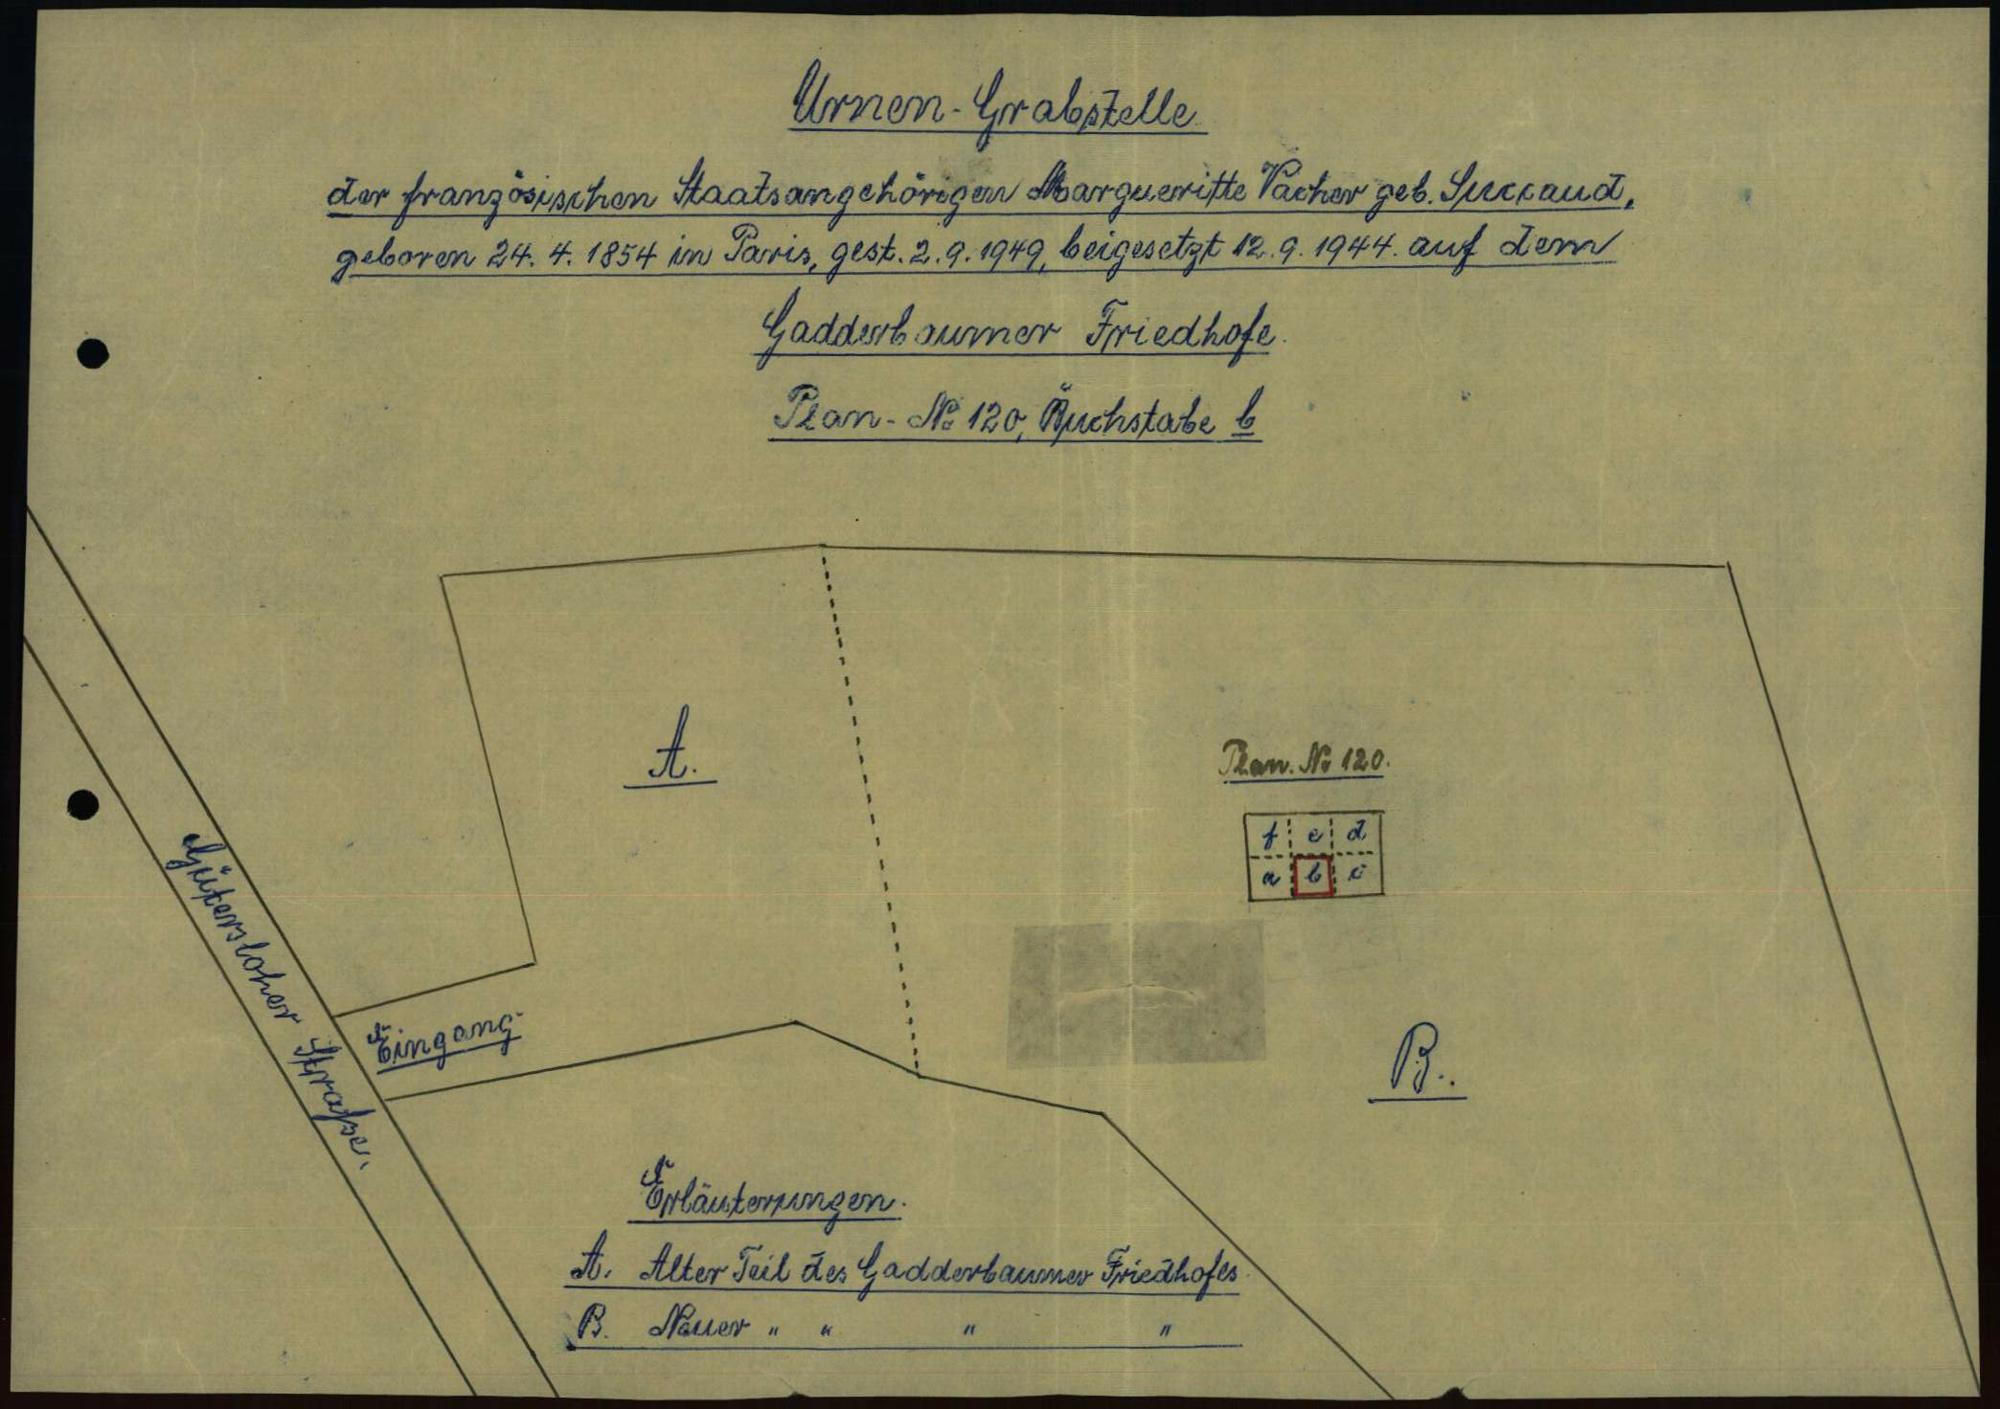 Urnen-Grabstelle
der französischen Staatsangehörigen Margueritte Vacher geb. Succaud,
geboren 24. 4. 1854 in Paris, gest. 2. 9. 1949, beigesetzt 12. 9. 1944. auf dem
Gadderbaumer Friedhofe.
Plan-No 120, Buchstabe b
A.
Plan. No 120.
f e d
a b c
Gütersloher Straße.
Eingang
B.
Erläuterungen.
A. Alter Teil des Gadderbaumer Friedhofes.
B. Neuer " " " "